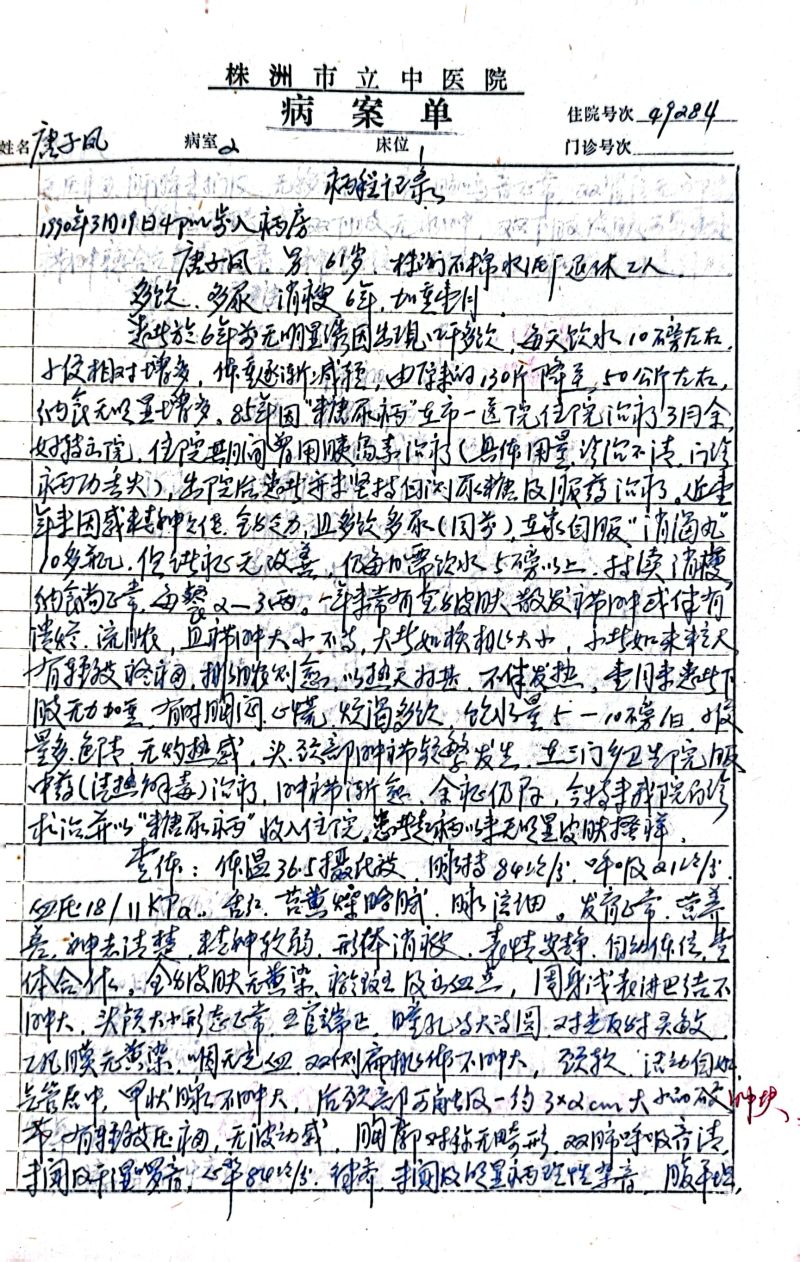 株洲市立中医院
病案单
住院号次 49284
姓名 唐子凤 病室 2 床位 1 门诊号次
病程记录
1990年3月19日4pm步入病房
唐子凤、男、61岁、株洲石棉水泥厂退休工人
多饮、多尿、消瘦6年,加重壹月
患者于6年前无明显诱因出现口干多饮,每天饮水10磅左右,
小便相对增多,体重逐渐减轻,由原来的130斤降至50公斤左右,
纳食无明显增多。85年因“糖尿病”在市一医院住院治疗3月余,
好转出院,住院期间曾用胰岛素治疗(具体用量、诊治不清,门诊
病历丢失),出院后患者并未坚持自测尿糖及服药治疗。近壹
年来因感精神欠佳,全身乏力,且多饮多尿(同前),在家自服“消渴丸”
10多瓶,但诸症无改善,仍每日需饮水5磅以上,持续消瘦,
纳食尚正常,每餐2—3两。一年来常有全身皮肤散发疖肿或伴有
溃烂、流脓,且疖肿大小不等,大者如核桃大小,小者如米粒大
有轻微疼痛,排脓则愈,以热天为甚,不伴发热,壹月来患者下
肢无力加重,有时胸闷、心慌,烦渴多饮,饮水量5—10磅/日,小便
量多,色清,无灼热感,头、颈部肿疖频繁发生,在三门乡卫生院服
中药(清热解毒)治疗,肿疖渐愈,余症仍存,今特来我院门诊
求治并以“糖尿病”收入住院。患者起病以来无明显皮肤搔痒。
查体:体温36.5摄氏度 脉搏84次/分 呼吸21次/分
血压18/11KPa。舌红、苔黄燥略腻,脉弦细。发育正常,营养
差,神志清楚,精神软弱,形体消瘦,表情安静,自动体位,查
体合作。全身皮肤无黄染、瘀斑及出血点,周身浅表淋巴结不
肿大,头颅大小形态正常,五官端正,瞳孔等大等圆,对光反射灵敏
巩膜无黄染,咽无充血,双侧扁桃体不肿大,颈软,活动自如
气管居中,甲状腺不肿大,后颈部可触及一约3×2cm大小的硬肿块
节,有轻微压痛,无波动感,胸廓对称无畸形,双肺呼吸音清,
未闻及干湿啰音,心率84次/分,律齐,未闻及明显病理性杂音,腹平坦,